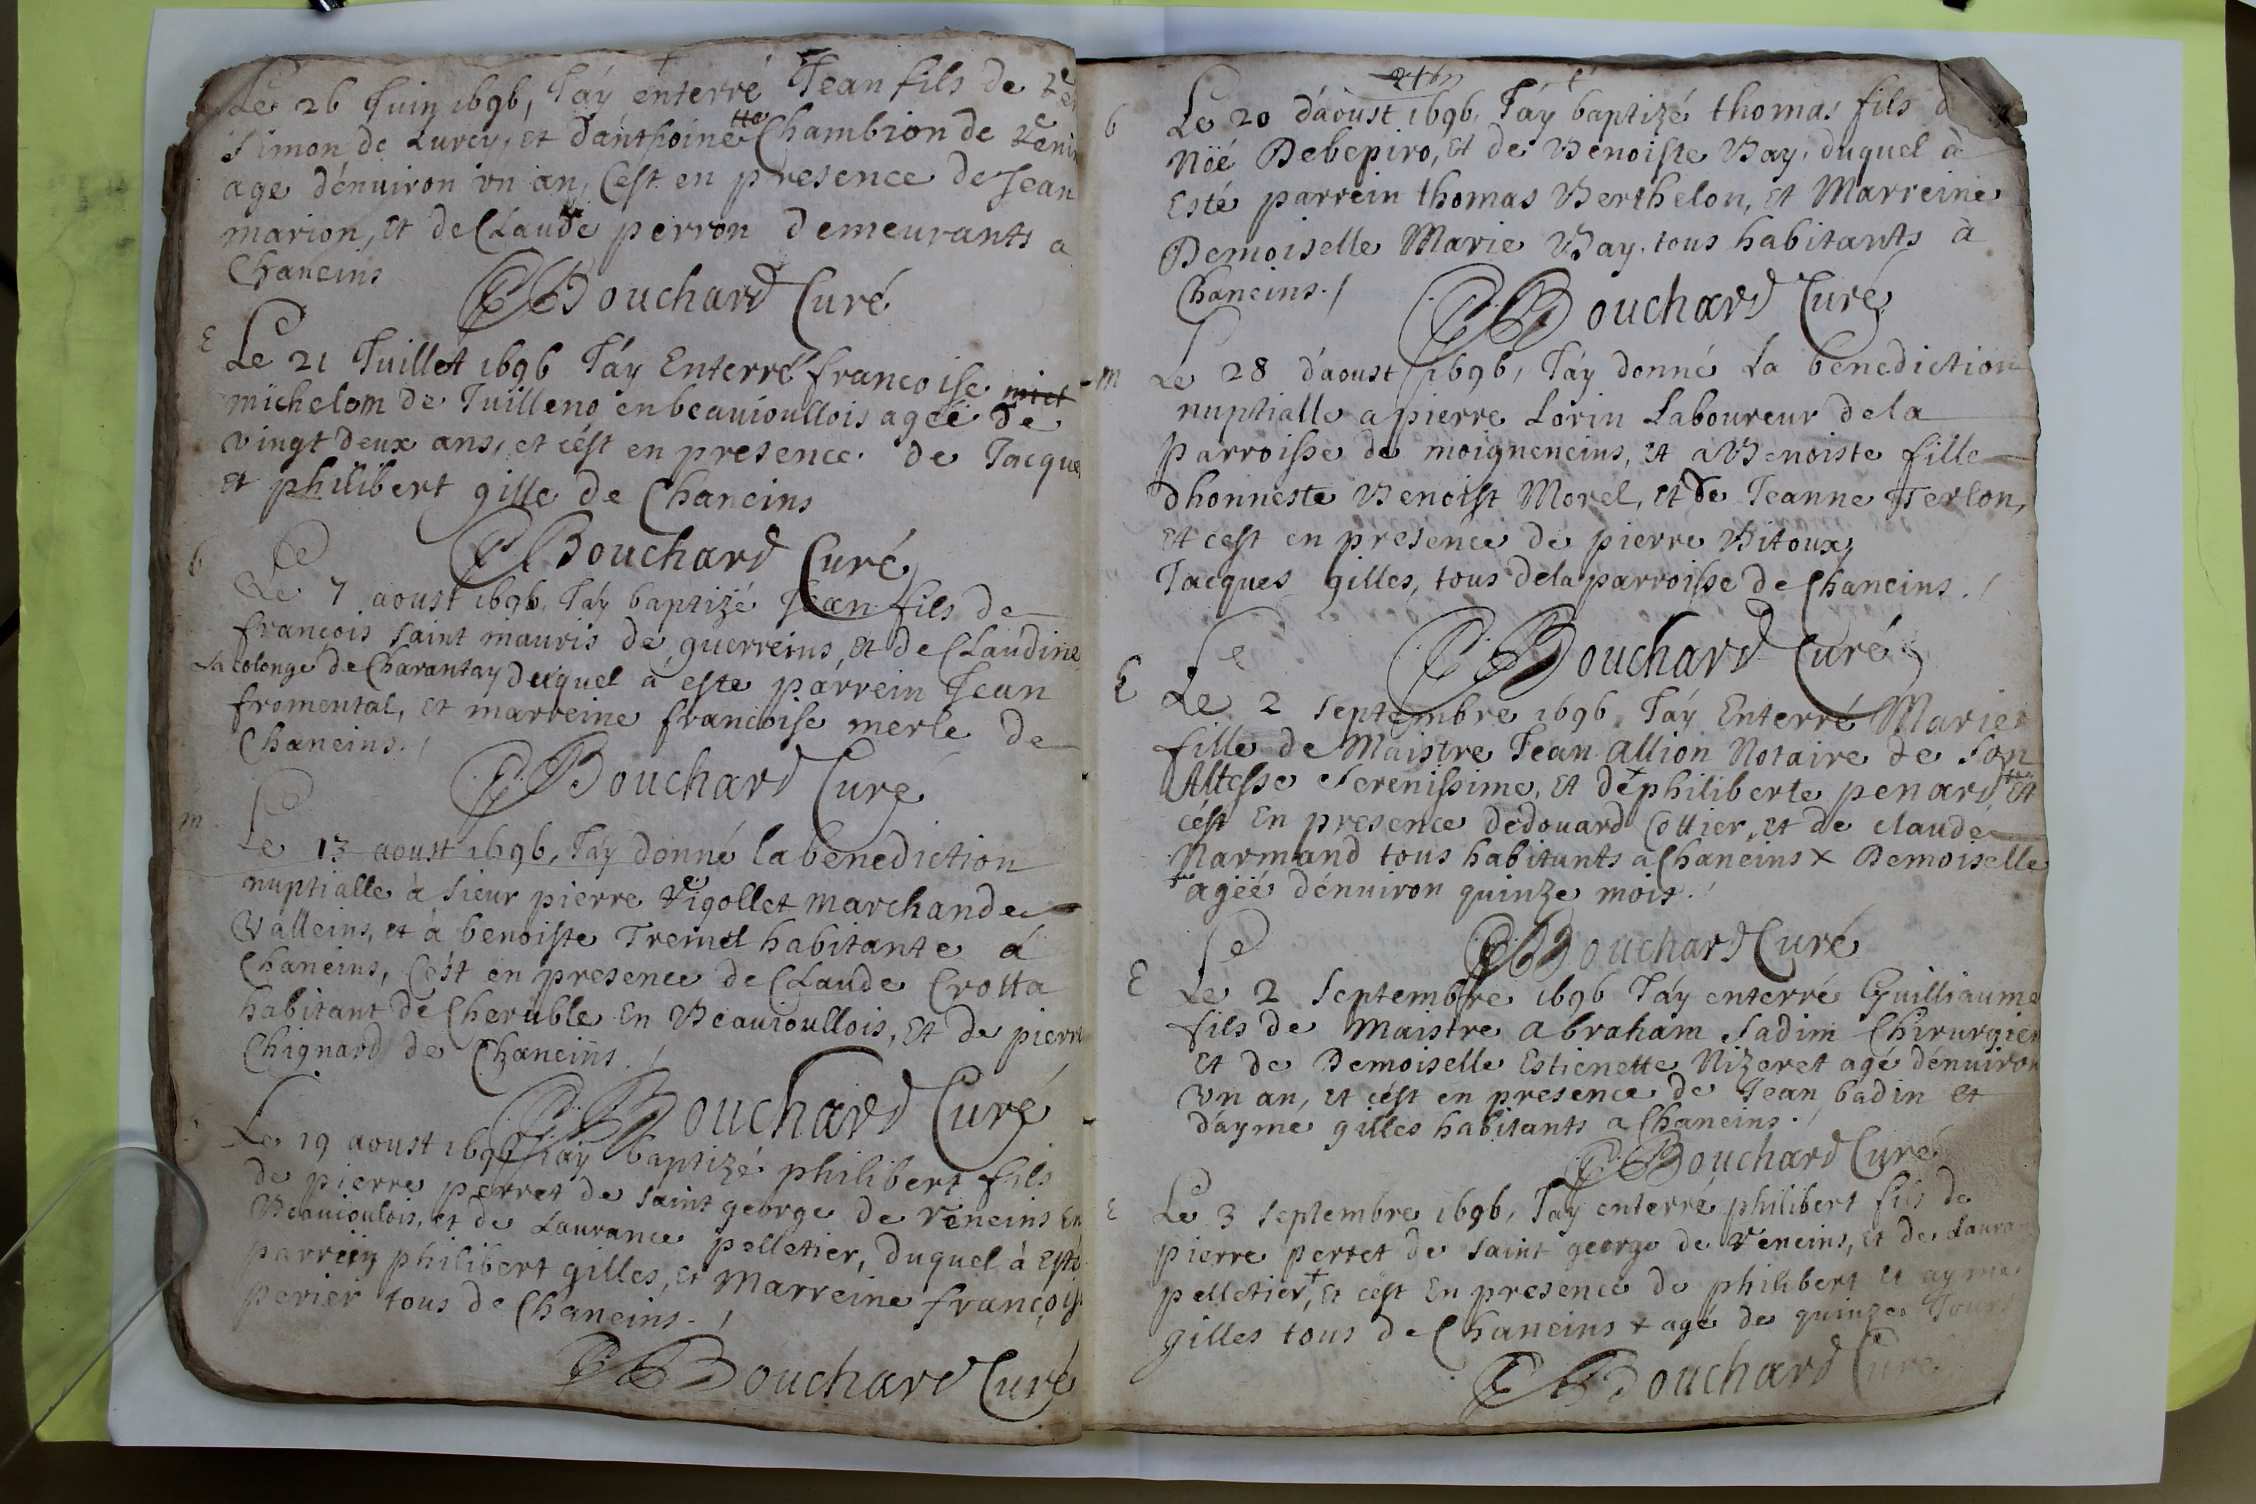 Le 26 Juin 1696, Iáy enterré Jean fils de
Simon de Lurcy, et d'anthoinette Chambion de
age dénuiron vn an, Cest en presence de Jean
marion, et de Claude perron demeurants a
Chaneins
Bouchard Curé
E
Le 21 Juillet 1696 Iáy Enterré francoise
michelom de Juilleno en beauioullois ageé de
vingt deux ans, et cést en presence de Jacque
et philibert gille de Chaneins
Bouchard Curé
b
Le 7 aoust 1696, Iáy baptizé Jean fils de
francois saint mauris de guerreins, et de Claudine
la colonge de Charantay duquel a este parrein Jean
fromental, et marreine francoise merle de
Chaneins./
Bouchard Curé
m
Le 13 aoust 1696, Iáy donné la benediction
nuptialle à sieur pierre Vigollet marchand de
Valleins, et à benoiste Tremel habitante á
Chaneins, Cést en presence de Claude Crotta
habitant de Cheruble En Beauioullois, Et de pierre
Chignard de Chaneins /
Bouchard Curé
Le 19 aoust 1696 Iáy baptizé philibert fils
de pierre perret de saint george de Veneins En
Beauioulois, et de Laurance pelletier, duquel à Esté
parrein philibert gilles, et Marreine françoise
perier tous de Chaneins./
Bouchard Curé
b
Le 20 d'aoust 1696, Iáy baptizé thomas fils d
Noé Debepiro, et de Benoiste Bay, duquel à
Esté parrein thomas Berthelon, et Marreine
Demoiselle Marie Bay, tous habitants à
Chaneins./
Bouchard Curé
m
Le 28 d'aoust 1696, Iáy donné La benediction
nuptialle a pierre Lorin Laboureur de la
parroisse de moigneneins, et a Benoiste fille
dhonneste Benoist Morel, et de Jeanne Terlon,
et cest en presence de pierre Bitoux,
Jacques gilles, tous de la parroisse de Chaneins./
Bouchard Curé
E
Le 2 septembre 1696, Iáy Enterré Marie
fille de Maistre Jean Allion Notaire de Son
Altesse Serenissime, et de x philiberte penard, et
cést En presence dedouard Collier, et de claude
Marmand tous habitants a Chaneins x Demoiselle
ageé dénuiron quinze mois./
Bouchard Curé
E
Le 2 Septembre 1696 Iáy enterré Guilliaume
fils de Maistre abraham Sadim Chirurgien
Et de Demoiselle Estienette Nizeret agé dénuiron
vn an, et cést en presence de Jean badin et
dáyme gilles habitants a Chaneins./
Bouchard Curé
E
Le 3 septembre 1696, Iay enterré philibert fils de
pierre perret de saint george de Veneins, et de Lauran
pelletier +, Et cést En presence de philibert et ayme
gilles tous de Chaneins + agé de quinze Jours
Bouchard Curé